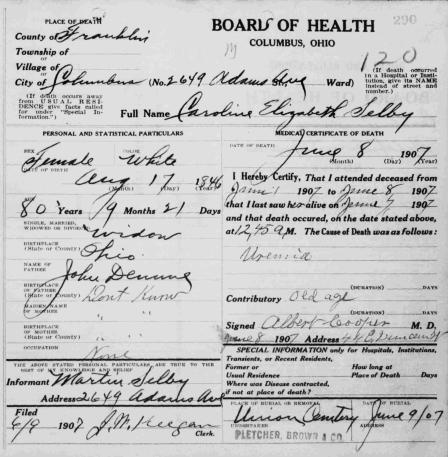 PLACE OF DEATH
BOARD OF HEALTH
290
County of Franklin
COLUMBUS, OHIO
Township of
120
Village of
City of Columbus (No. 2649 Adams Ave St., Ward)
(If death occurred in a Hospital or Institution, give its NAME instead of street and number.)
(If death occurs away from USUAL RESIDENCE give facts called for under "Special Information.")
Full Name Caroline Elizabeth Selby
PERSONAL AND STATISTICAL PARTICULARS
SEX COLOR
Female White
DATE OF BIRTH
Aug 17 1846
(Month) (Day) (Year)
AGE
80 Years 9 Months 21 Days
SINGLE, MARRIED, WIDOWED OR DIVORCED
Widow
BIRTHPLACE (State or County)
Ohio
NAME OF FATHER
John
BIRTHPLACE OF FATHER (State or County)
Dont Know
MAIDEN NAME OF MOTHER
BIRTHPLACE OF MOTHER (State or County)
OCCUPATION
THE ABOVE STATED PERSONAL PARTICULARS ARE TRUE TO THE BEST OF MY KNOWLEDGE AND BELIEF
Informant Martin Selby
Address 2649 Adams Ave
Filed
6/9 1907 J.W. Keegan
Clerk.
MEDICAL CERTIFICATE OF DEATH
DATE OF DEATH
June 8 1907
(Month) (Day) (Year)
I Hereby Certify, That I attended deceased from
June 1 1907 to June 8 1907
that I last saw her alive on June 7 1907
and that death occured, on the date stated above,
at 12,45 A M. The Cause of Death was as follows:
Uremia
(DURATION) DAYS
Contributory Old age
(DURATION) DAYS
Signed Albert Cooper M. D.
June 8 1907 Address
SPECIAL INFORMATION only for Hospitals, Institutions, Transients, or Recent Residents.
Former or Usual Residence
How long at Place of Death Days
Where was Disease contracted, if not at place of death?
PLACE OF BURIAL OR REMOVAL DATE OF BURIAL
Union Cemetery June 9/07
UNDERTAKER ADDRESS
PLETCHER, BROWN & CO.